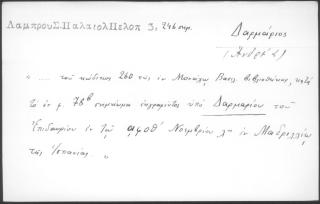 Λαμπρου Σ. Παλαιολ Πελοπ 3, 246 σημ.
Δαρμάριος
(Ἀνδρέας)
« .... τοῦ κώδικος 260 τῆς ἐν Μονάχῳ Βασ. βιβλιοθήκης, κατὰ
τὸ ἐν φ. 78β σημείωμα γραφέντος ὑπὸ Δαρμαρίου τοῦ
Ἐπιδαυρίου ἐν τῷ αφοθ' Νοεμβρίου λῃ ἐν Μαδρελλίῳ
τῆς Ἱσπανίας. »